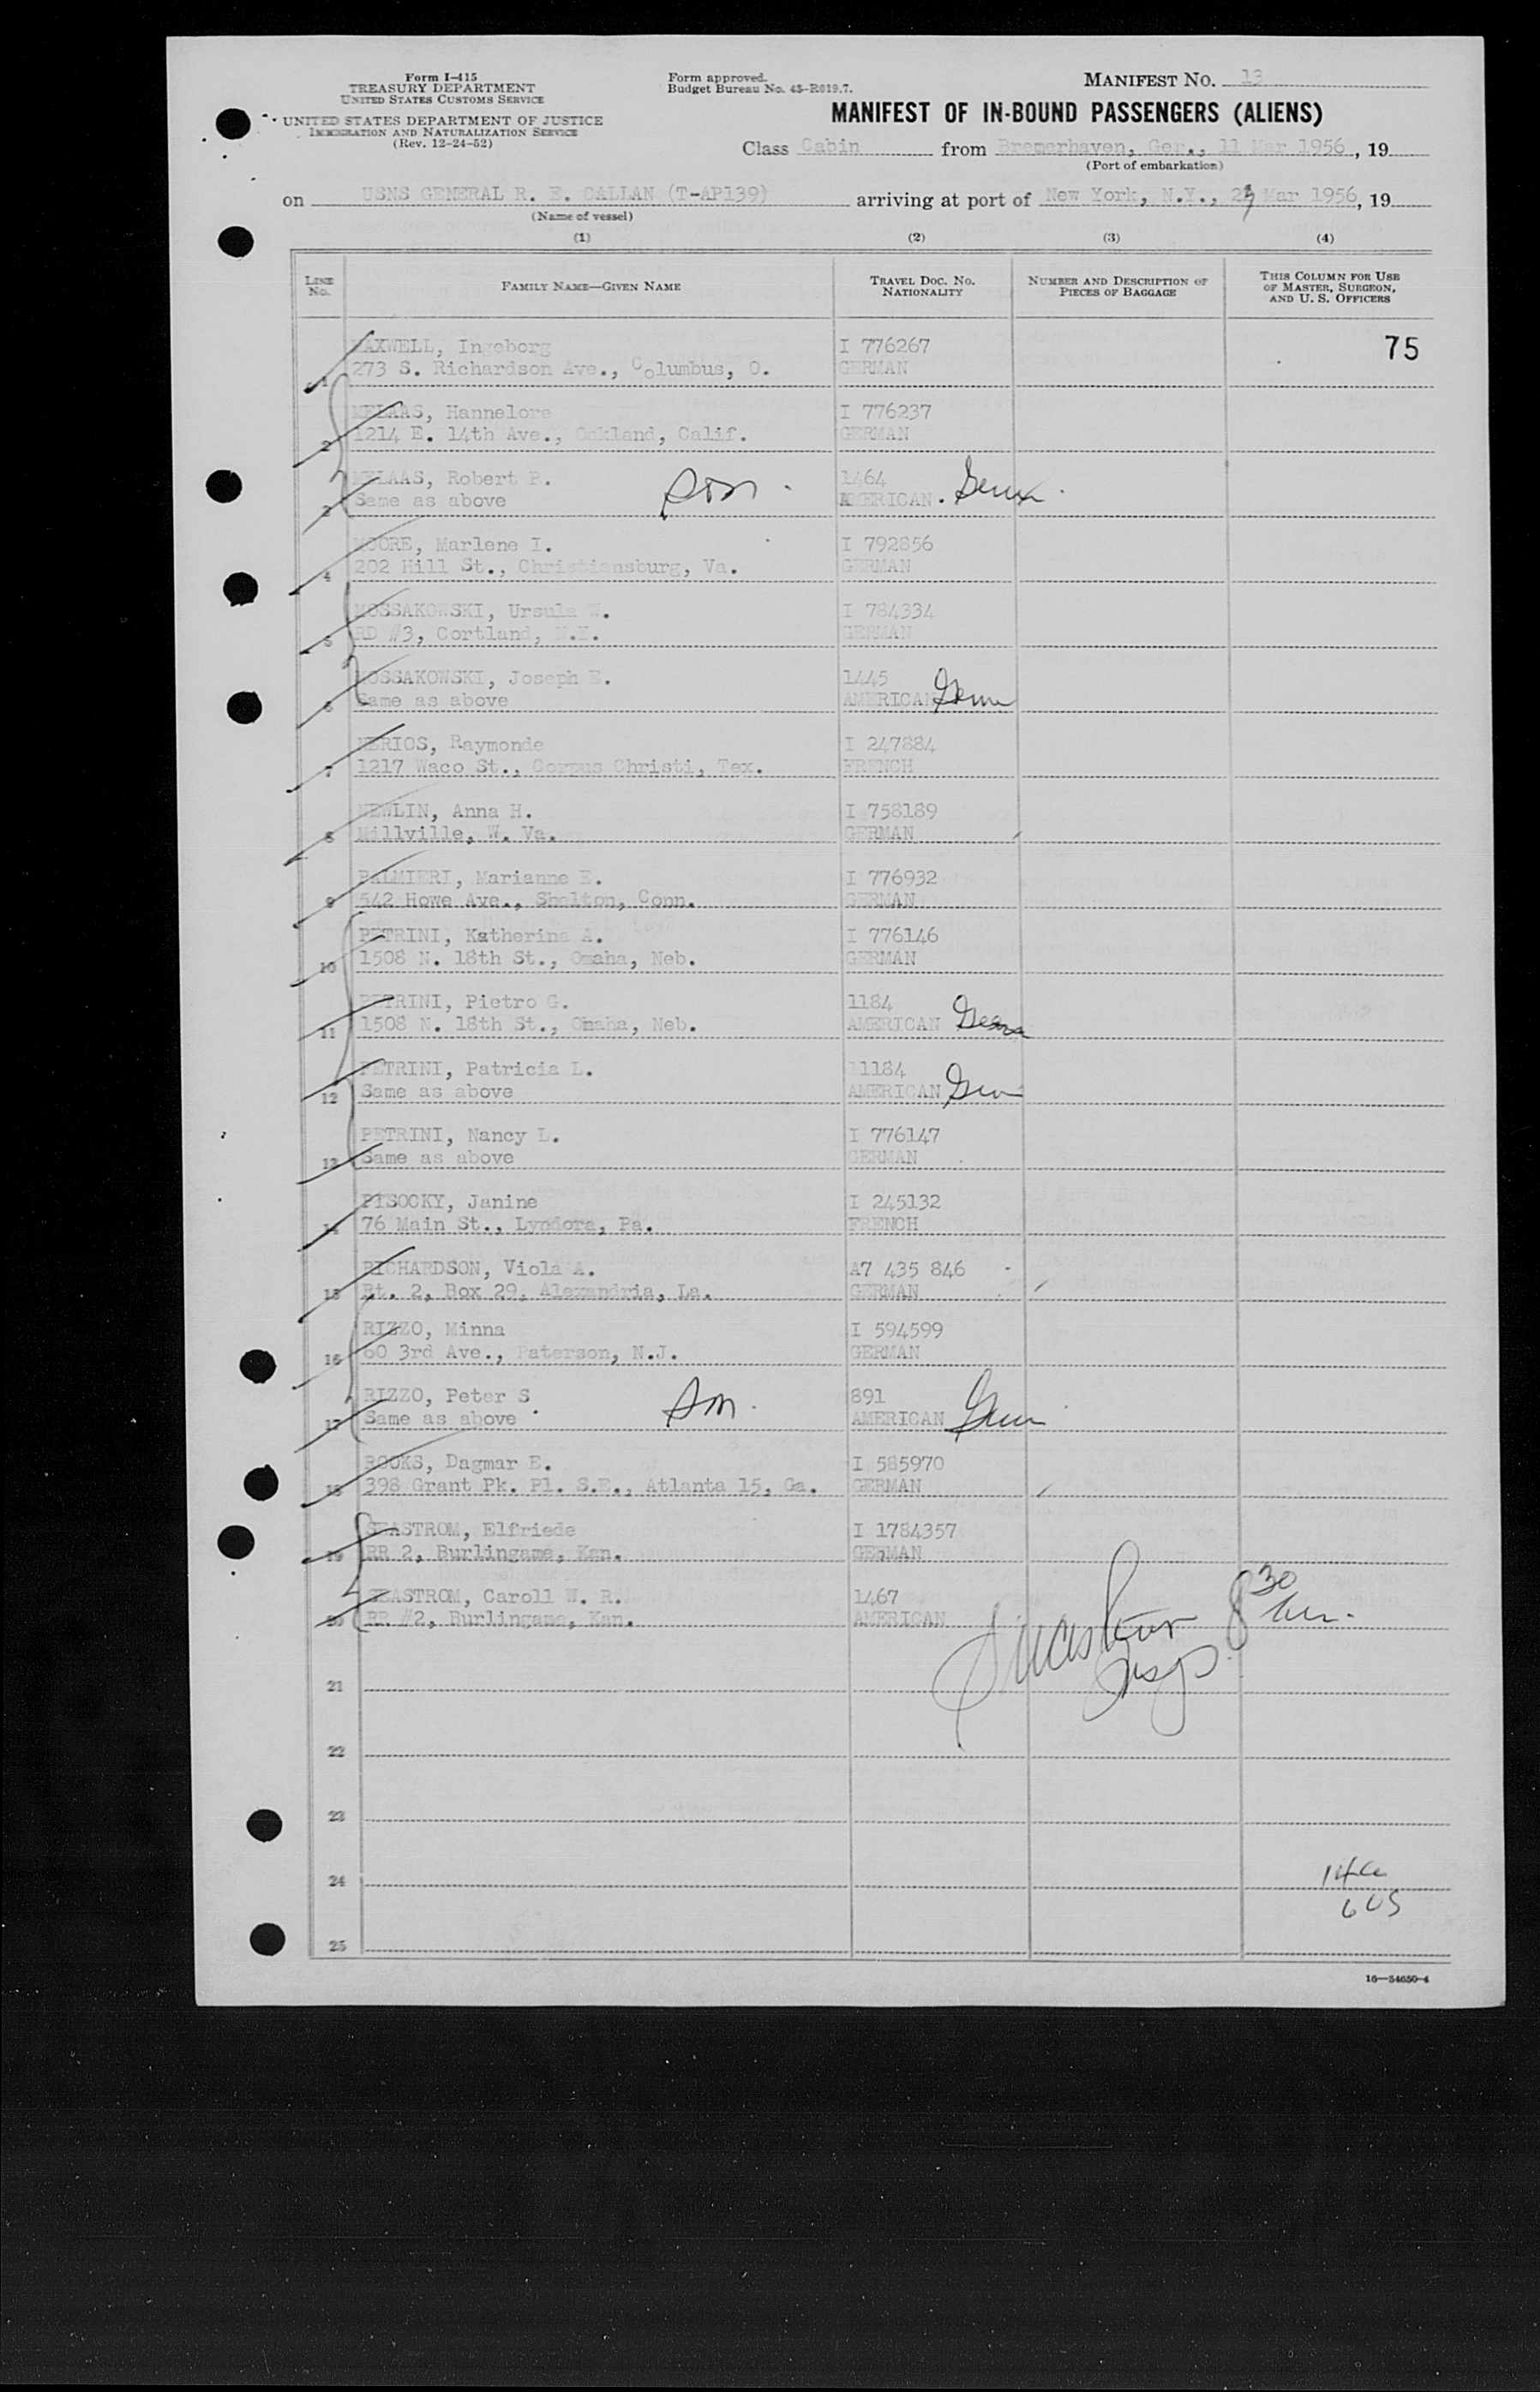 Form I-415
TREASURY DEPARTMENT
UNITED STATES CUSTOMS SERVICE
UNITED STATES DEPARTMENT OF JUSTICE
IMMIGRATION AND NATURALIZATION SERVICE
(Rev. 12-24-52)
Form approved.
Budget Bureau No. 43-R019.7.
MANIFEST NO. 13
MANIFEST OF IN-BOUND PASSENGERS (ALIENS)
Class Cabin from Bremerhaven, Ger., 11 Mar 1956, 19
(Port of embarkation)
on USNS GENERAL R. E. CALLAN (T-AP139) arriving at port of New York, N.Y., 23 Mar 1956, 19
(Name of vessel)
(1) (2) (3) (4)
LINE No. FAMILY NAME—GIVEN NAME TRAVEL DOC. NO. NATIONALITY NUMBER AND DESCRIPTION OF PIECES OF BAGGAGE THIS COLUMN FOR USE OF MASTER, SURGEON, AND U. S. OFFICERS
MAXWELL, Ingeborg I 776267 75
1 273 S. Richardson Ave., Columbus, O. GERMAN
MELAAS, Hannelore I 776237
2 1214 E. 14th Ave., Oakland, Calif. GERMAN
MELAAS, Robert P. son. 1464
3 Same as above AMERICAN.
MOORE, Marlene I. I 792856
4 202 Hill St., Christiansburg, Va. GERMAN
MOSSAKOWSKI, Ursula W. I 784334
5 RD #3, Cortland, N.Y. GERMAN
MOSSAKOWSKI, Joseph E. 1445
6 Same as above AMERICAN
NERIOS, Raymonde I 247884
7 1217 Waco St., Corpus Christi, Tex. FRENCH
NEWLIN, Anna H. I 758189
8 Millville, W. Va. GERMAN
PALMIERI, Marianne E. I 776932
9 542 Howe Ave., Shelton, Conn. GERMAN
PETRINI, Katherina A. I 776146
10 1508 N. 18th St., Omaha, Neb. GERMAN
PETRINI, Pietro G. 1184
11 1508 N. 18th St., Omaha, Neb. AMERICAN
PETRINI, Patricia L. 11184
12 Same as above AMERICAN
PETRINI, Nancy L. I 776147
13 Same as above GERMAN
PISOCKY, Janine I 245132
14 76 Main St., Lyndora, Pa. FRENCH
RICHARDSON, Viola A. A7 435 846
15 Rt. 2, Box 29, Alexandria, La. GERMAN
RIZZO, Minna I 594599
16 60 3rd Ave., Paterson, N.J. GERMAN
RIZZO, Peter S son. 891
17 Same as above AMERICAN
ROOKS, Dagmar E. I 585970
18 398 Grant Pk. Pl. S.E., Atlanta 15, Ga. GERMAN
SEASTROM, Elfriede I 1784357
19 RR 2, Burlingame, Kan. GERMAN
SEASTROM, Caroll W. R. 1467
20 RR #2, Burlingame, Kan. AMERICAN
21
22
23
24
25
6 US
16—54650-4